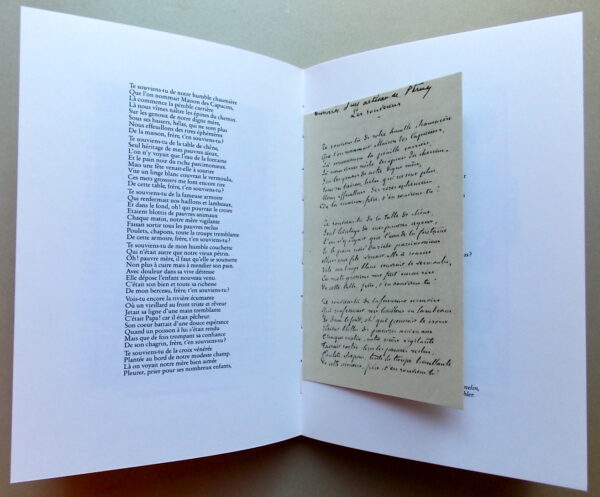 Te souviens-tu de notre humble chaumière
Que l'on nommait Maison des Capucins,
Là commença la pénible carrière
Là nous vîmes naître les épines du chemin.
Sur les genoux de notre digne mère,
Sous ses baisers, hélas, qui ne sont plus
Nous effeuillons des rires éphémères
De la maison, frère, t'en souviens-tu?
Te souviens-tu de la table de chêne,
Seul héritage de mes pauvres aïeux,
L'on n'y voyait que l'eau de la fontaine
Et le pain noir du riche parcimonieux.
Mais une fête venait-elle à sourire
Vite un linge blanc couvrait le vermoulu,
Ces mets grossiers me font encore rire
De cette table, frère, t'en souviens-tu?
Te souviens-tu de la fameuse armoire
Qui renfermait nos haillons et lambeaux,
Et dans le fond, oh! qui pourrait le croire
Etaient blottis de pauvres animaux
Chaque matin, notre mère vigilante
Faisait sortir tous les pauvres reclus
Poulets, chapons, toute la troupe tremblante
De cette armoire, frère, t'en souviens-tu?
Te souviens-tu de mon humble couchette
Qui n'était autre que notre vieux pétrin.
Oh! pauvre mère, il faut qu'elle se soumette
Non plus à cuire mais à mendier son pain.
Avec douleur dans sa vive détresse
Elle dépose l'enfant nouveau venu.
C'était son bien et toute sa richesse
De mon berceau, frère, t'en souviens-tu?
Vois-tu encore la rivière écumante
Où un vieillard au front triste et rêveur
Jetait sa ligne d'une main tremblante
C'était Papa! car il était pêcheur
Son cœur battait d'une douce espérance
Quand un poisson à lui s'était rendu
Mais que de fois trompant sa confiance
De son chagrin, frère, t'en souviens-tu?
Te souviens-tu de la croix vénérée
Plantée au bord de notre modeste champ.
Là on voyait notre mère bien aimée
Pleurer, prier pour ses nombreux enfants,
d'un artisan de
Les souvenirs
Te souviens-tu de notre humble chaumière
Que l'on nommait Maison des Capucins,
Là commença la pénible carrière
Là nous vîmes naître les épines du chemin.
Sur les genoux de notre digne mère,
Sous ses baisers, hélas qui ne sont plus
Nous effeuillons des rires éphémères
De la maison, frère, t'en souviens-tu?
Te souviens-tu de la table de chêne,
Seul héritage de mes pauvres aïeux,
L'on n'y voyait que l'eau de la fontaine
Et le pain noir du riche parcimonieux
Mais une fête venait-elle à sourire
Vite un linge blanc couvrait le vermoulu,
Ces mets grossiers me font encore rire
De cette table, frère, t'en souviens-tu?
Te souviens-tu de la fameuse armoire
Qui renfermait nos haillons et lambeaux
Et dans le fond, oh! qui pourrait le croire
Etaient blottis de pauvres animaux
Chaque matin, notre mère vigilante
Faisait sortir tous les pauvres reclus
Poulets chapons, toute la troupe tremblante
De cette armoire, frère, t'en souviens-tu?